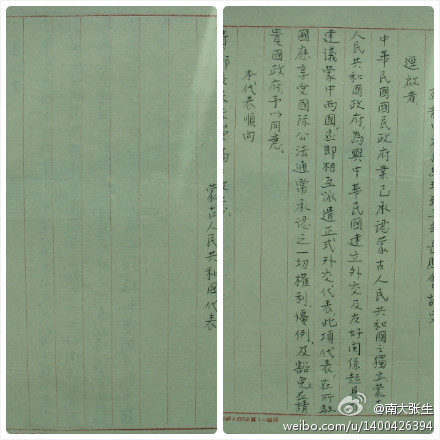 逕啟者
中華民國國民政府業已承認蒙古人民共和國之獨立蒙
人民共和國政府為與中華民國建立外交及友好關係起見
建議蒙中兩國立即相互派遣正式外交代表此項代表在所駐
國應享受國际公法通常承認之一切權利優例及豁免並請
貴國政府予以同意
本代表順向
蒙古人民共和國代表
@南大张生
weibo.com/u/1400426394